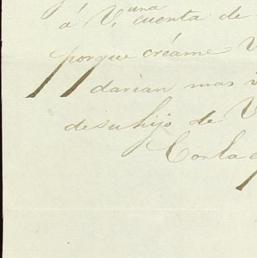 una
á V. cuenta de
porque créame V
darian mas
de su hijo de V
Con la